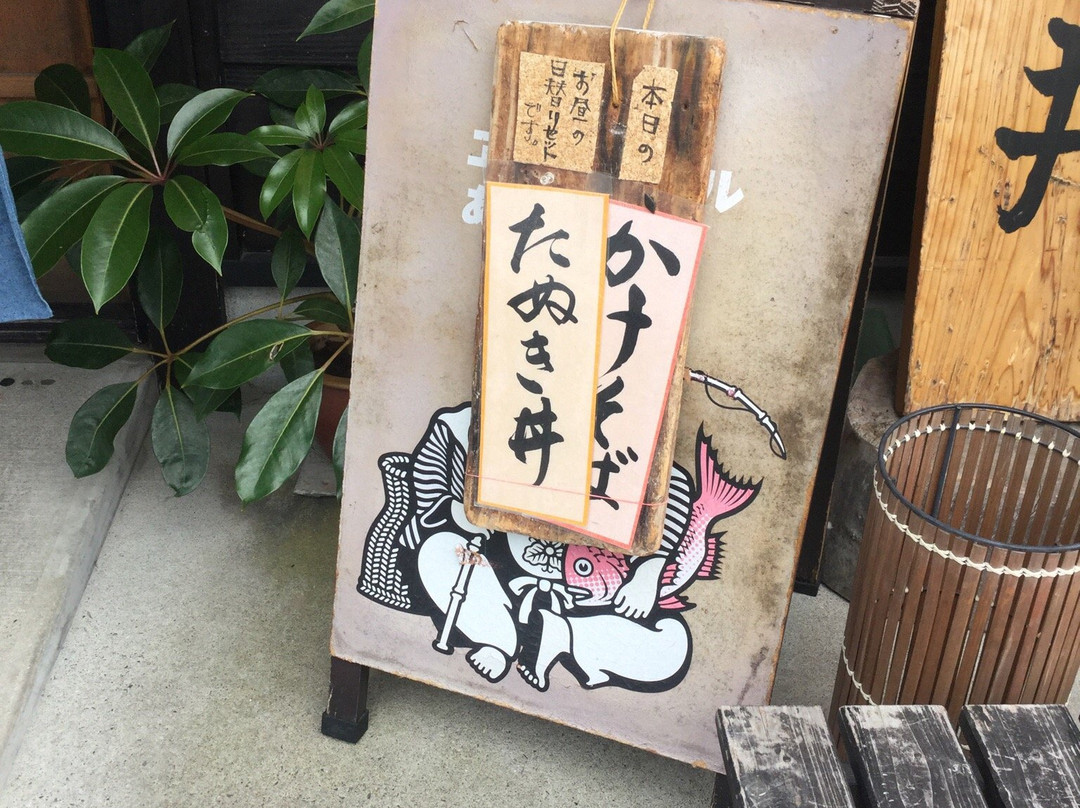 本日の
お昼の
日替りセット
です。
かけそば
たぬき丼